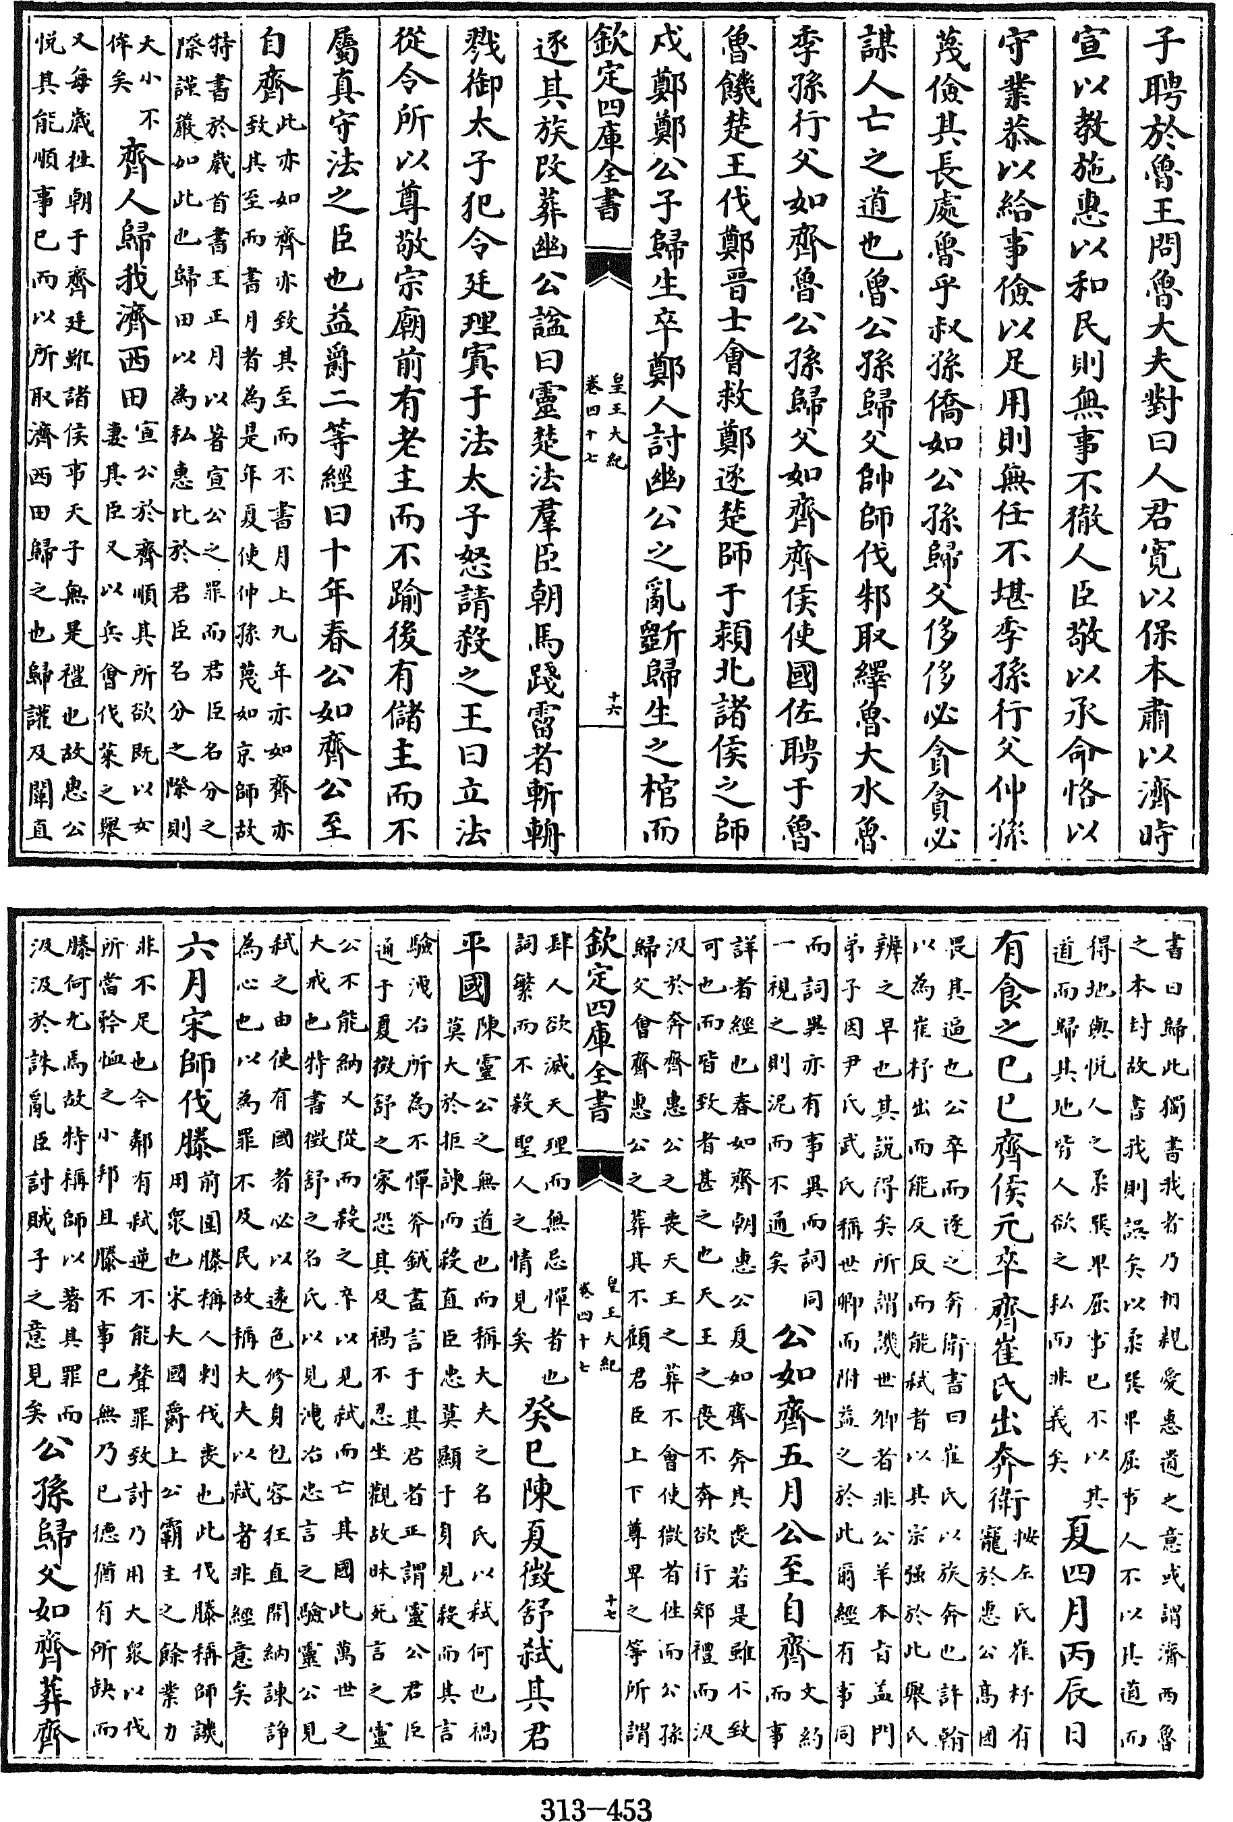 子聘於魯王問魯大夫對曰人君寛以保本肅以濟時
宣以教施惠以和民則無事不徹人臣敬以承命恪以
守業恭以給事儉以足用則無任不堪季孫行父仲孫
蔑儉其長處魯乎叔孫僑如公孫歸父侈侈必貪貪必
謀人亡之道也魯公孫歸父帥師伐邾取繹魯大水魯
季孫行父如齊魯公孫歸父如齊齊侯使國佐聘于魯
魯饑楚王伐鄭晉士會救鄭逐楚師于潁北諸侯之師
戍鄭鄭公子歸生卒鄭人討幽公之亂斵歸生之棺而
欽定四庫全書
皇王大紀
卷四十七
十六
逐其族改葬幽公諡曰靈楚法羣臣朝馬踐霤者斬輈
戮御太子犯令廷理寘于法太子怒請殺之王曰立法
從令所以尊敬宗廟前有老主而不踰後有儲主而不
屬真守法之臣也益爵二等經曰十年春公如齊公至
自齊
此亦如齊亦致其至而不書月上九年亦如齊亦
致其至而書月者為是年夏使仲孫蔑如京師故
特書於歲首書王正月以著宣公之罪而君臣名分之
際謹嚴如此也歸田以為私惠比於君臣名分之際則
大小不
侔矣
齊人歸我濟西田
宣公於齊順其所欲既以女
妻其臣又以兵會伐萊之舉
又每歲徃朝于齊廷雖諸侯事天子無是禮也故惠公
悦其能順事已而以所取濟西田歸之也歸讙及闡直
書曰歸此獨書我者乃相親愛惠遺之意或謂濟西魯
之本封故書我則誤矣以柔巽卑屈事人不以其道而
得地與悦人之柔巽卑屈事已不以其
道而歸其地皆人欲之私而非義矣
夏四月丙辰日
有食之己巳齊侯元卒齊崔氏出奔衛
按左氏崔杼有
寵於惠公高國
畏其逼也公卒而逐之奔衛書曰崔氏以族奔也許翰
以為崔杼出而能反反而能弑者以其宗强於此舉氏
辨之早也其説得矣所謂譏世卿者非公羊本旨蓋門
弟子因尹氏武氏稱世卿而附益之於此爾經有事同
而詞異亦有事異而詞同
一視之則泥而不通矣
公如齊五月公至自齊
而文約
而事
詳者經也春如齊朝惠公夏如齊奔其喪若是雖不致
可也而皆致者甚之也天王之喪不奔欲行郊禮而汲
汲於奔齊惠公之喪天王之葬不會使微者徃而公孫
歸父會齊惠公之葬其不顧君臣上下尊卑之等所謂
欽定四庫全書
皇王大紀
卷四十七
十七
肆人欲滅天理而無忌憚者也
詞繁而不殺聖人之情見矣
癸巳陳夏徵舒弑其君
平國
陳靈公之無道也而稱大夫之名氏以弑何也禍
莫大於拒諫而殺直臣忠莫顯于身見殺而其言
驗洩冶所為不憚斧鉞盡言于其君者正謂靈公君臣
通于夏徵舒之家恐其及禍不忍坐觀故昧死言之靈
公不能納又從而殺之卒以見弑而亡其國此萬世之
大戒也特書徵舒之名氏以見洩冶忠言之驗靈公見
弑之由使有國者必以逺色修身包容狂直開納諫諍
為心也以為罪不及民故稱大夫以弑者非經意矣
六月宋師伐滕
前圍滕稱人刺伐喪也此伐滕稱師譏
用衆也宋大國爵上公霸主之餘業力
非不足也今鄰有弑逆不能聲罪致討乃用大衆以伐
所當矜恤之小邦且滕不事已無乃已德猶有所缺而
滕何尤焉故特稱師以著其罪而
汲汲於誅亂臣討賊子之意見矣
公孫歸父如齊葬齊
313—453